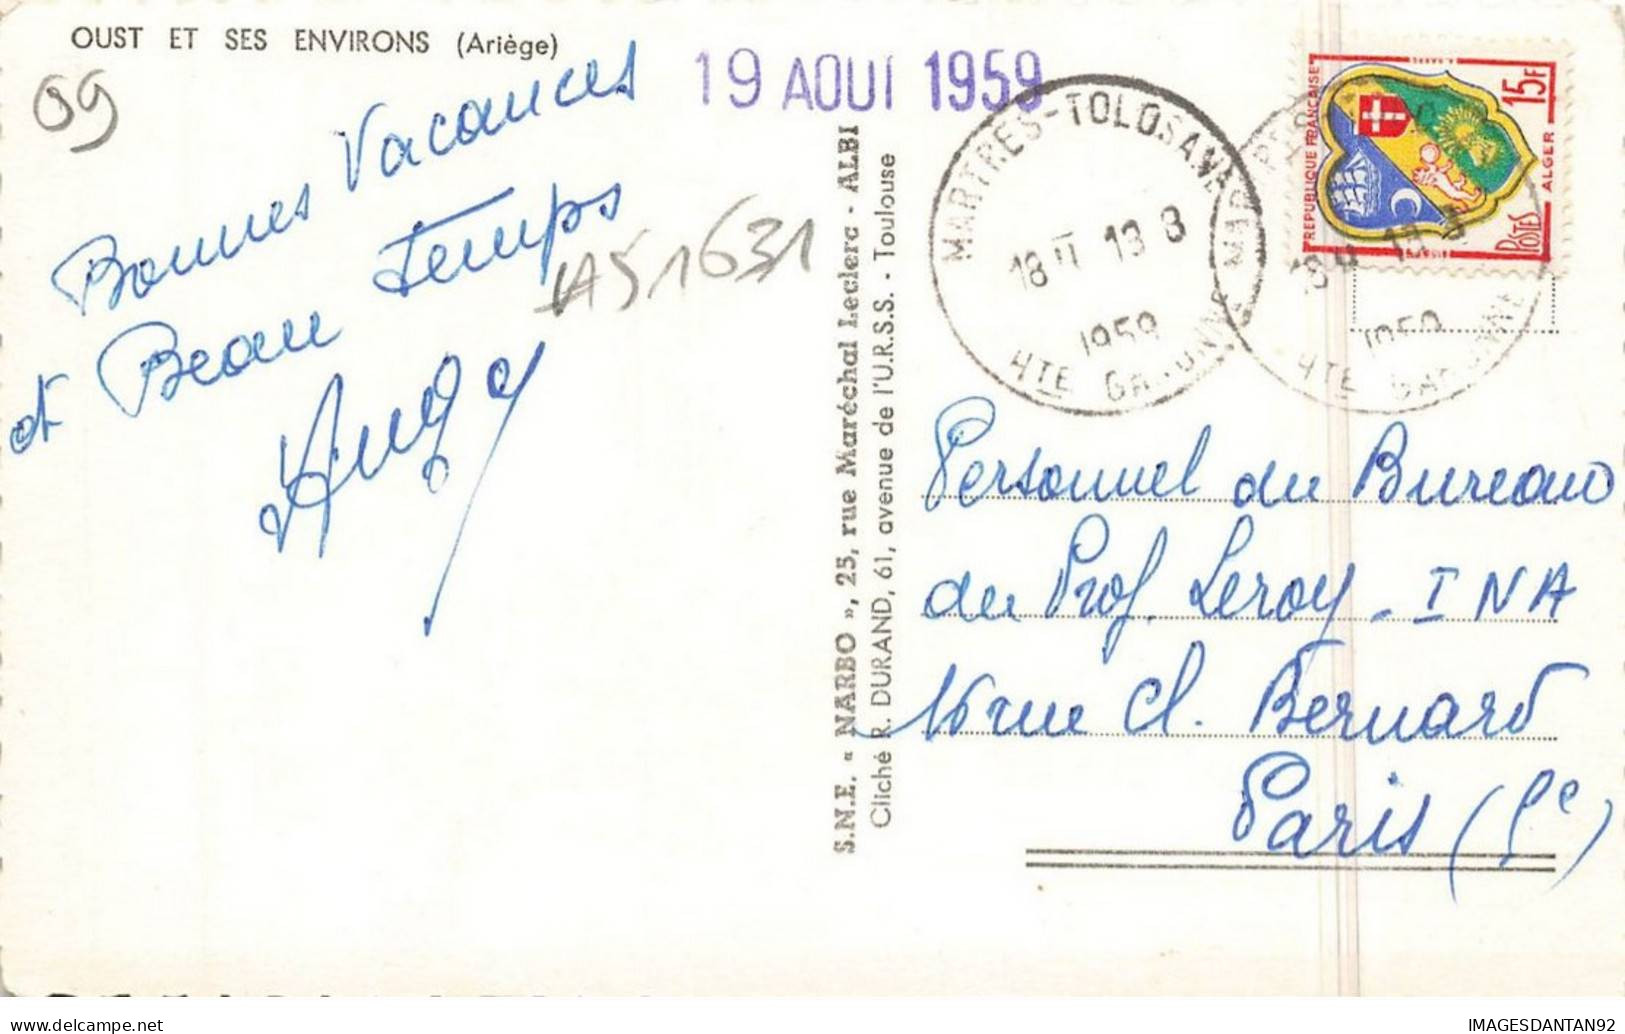 OUST ET SES ENVIRONS (Ariège)
09
Bonnes Vacances
et Beau temps
AS1631
19 AOUT 1959
MARTRES-TOLOSANE
18 H 13 8
1959
HTE GARONNE
18 H 13 8
1959
HTE GARONNE
REPUBLIQUE FRANÇAISE
15F
ALGER
POSTES
S.N.E. « NARBO », 25, rue Maréchal Leclerc - ALBI
Cliché R. DURAND, 61, avenue de l'U.R.S.S. - Toulouse
Personnel du Bureau
du Prof. Leroy - INA
16 rue Cl. Bernard
Paris (5e)
www.delcampe.net
IMAGESDANTAN92